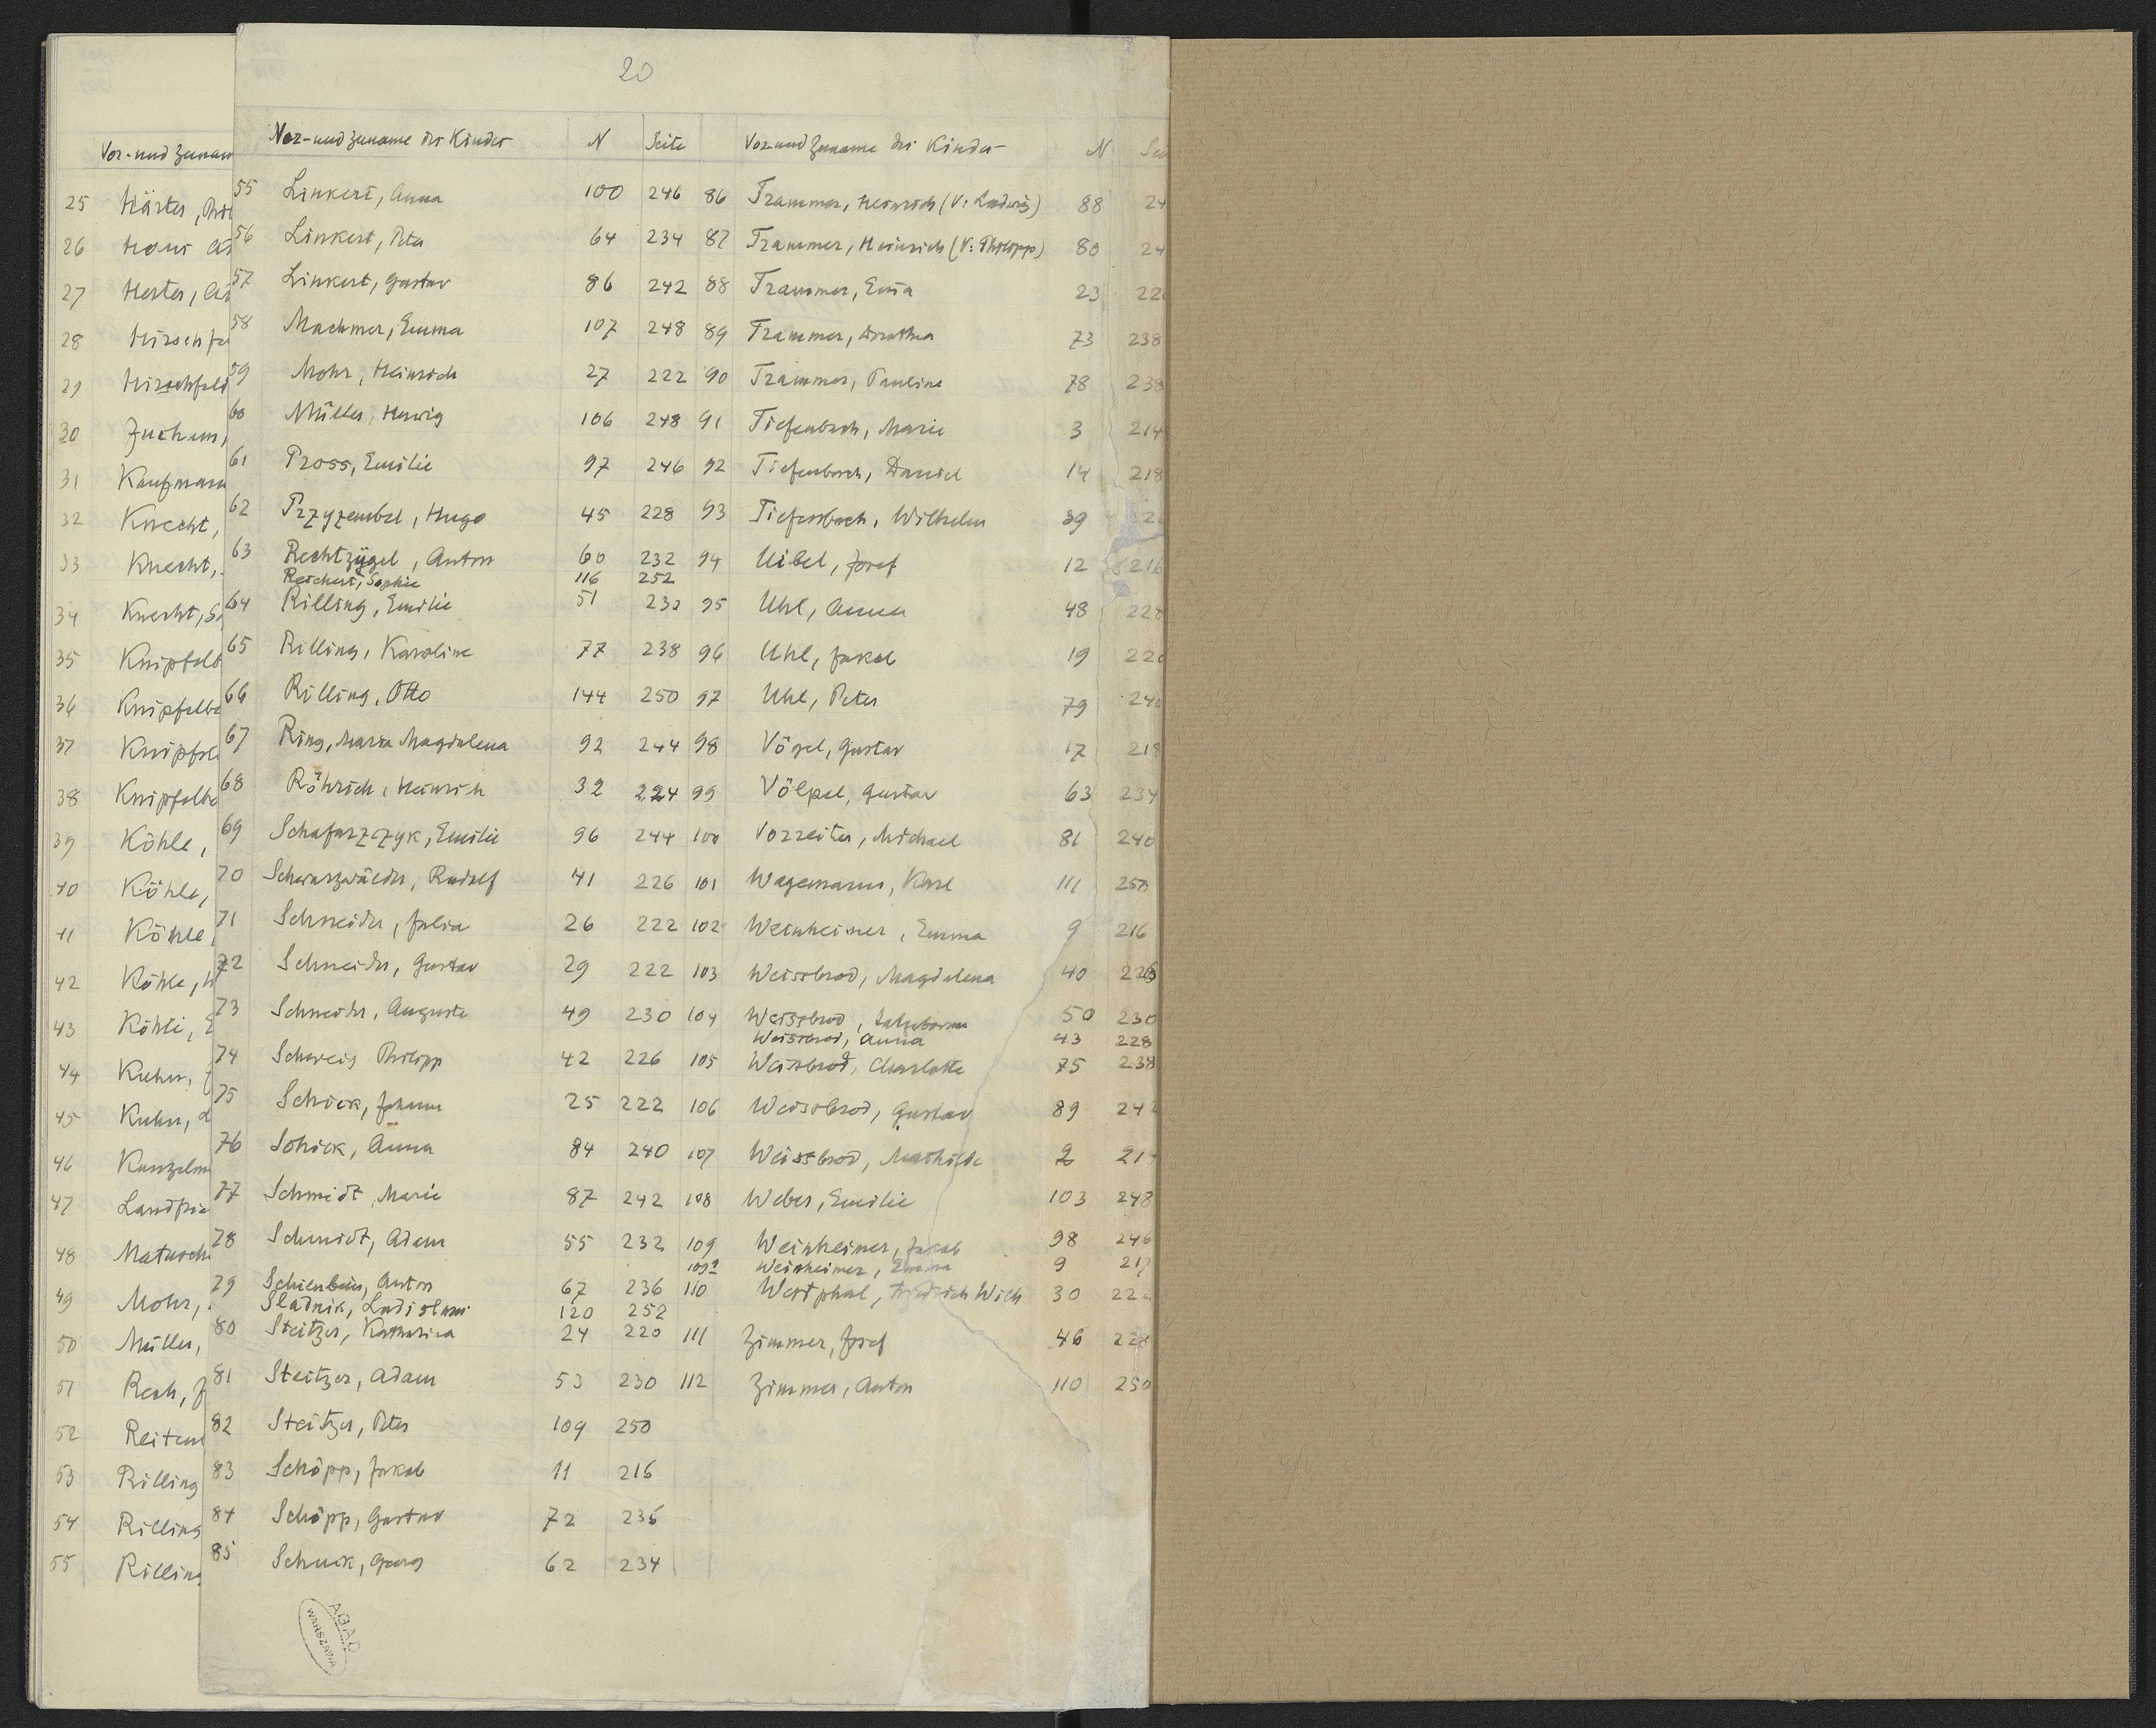 20
Vor- und Zunam
25 Härter,
26
27 Herter,
28 Hirschfe
29 Hirschfeld
30 Juchum,
31 Kaufmann
32 Knecht,
33 Knecht,
34 Knecht, S
35 Knipfelb
36 Knipfelbe
37 Knipfel
38 Knipfelbe
39 Köhle,
40 Köhle,
41 Köhle,
42 Köhle,
43 Köhle,
44 Kuhn,
45 Kuhn,
46 Kunzelm
47 Landfrie
48 Matusch
49 Mohr,
50 Müller,
51 Resh, J
52 Reitem
53 Rilling
54 Rilling
55 Rilling
Vor- und Zuname des Kindes N Seite
55 Linkert, Anna 100 246
56 Linkert, Peter 64 234
57 Linkert, Gustav 86 242
58 Machmer, Emma 107 248
59 Mohr, Heinrich 27 222
60 Müller, Herwig 106 248
61 Pross, Emilie 97 246
62 Przyzembel, Hugo 45 228
63 Rechtzügel, Anton 60 232
Reichert, Sophie 116 252
64 Rilling, Emilie 51 230
65 Rilling, Karoline 77 238
66 Rilling, Otto 144 250
67 Ring, Maria Magdalena 92 244
68 Röhrich, Heinrich 32 224
69 Schafarzczyk, Emilie 96 244
70 Schwarzwälder, Rudolf 41 226
71 Schneider, Julia 26 222
72 Schneider, Gustav 29 222
73 Schneider, Auguste 49 230
74 Schweig Philipp 42 226
75 Schick, Johann 25 222
76 Schick, Anna 84 240
77 Schmidt, Marie 87 242
78 Schmidt, Adam 55 232
79 Schienbein, Anton 67 236
Sladnik, Ladislaus 120 252
80 Steitzer, Katharina 24 220
81 Steitzer, Adam 53 230
82 Steitzer, Peter 109 250
83 Schöpp, Jakob 11 216
84 Schöpp, Gustav 72 236
85 Schuck, Georg 62 234
Vor und Zuname des Kindes N Sei
86 Trammer, Heinrich (V: Ludwig) 88 24
87 Trammer, Heinrich (V: Philipp) 80 24
88 Trammer, Eva 23 220
89 Trammer, Dorothea 73 238
90 Trammer, Pauline 78 238
91 Tiefenbach, Marie 3 214
92 Tiefenbach, Daniel 14 218
93 Tiefenbach, Wilhelm 39 2
94 Uibel, Josef 12 216
95 Uhl, Anna 48 228
96 Uhl, Jakob 19 220
97 Uhl, Peter 79 240
98 Vögel, Gustav 17 218
99 Völpel, Gustav 63 234
100 Vorreiter, Michael 81 240
101 Wagemann, Karl 111 250
102 Weinheimer, Emma 9 216
103 Weissbrod, Magdalena 40 226
104 Weissbrod, 50 230
Weissbrod, Anna 43 228
105 Weissbrod, Charlotte 75 238
106 Weissbrod, Gustav 89 242
107 Weissbrod, Mathilde 2 214
108 Weber, Emilie 103 248
109 Weinheimer, Jakob 98 246
109a Weinheimer, Emma 9 217
110 Westphal, Friedrich Wilh 30 222
111 Zimmer, Josef 46 228
112 Zimmer, Anton 110 250
AGAD
WARSZAWA